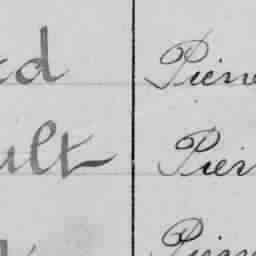 ed Pierr
ult Pier
Pierr